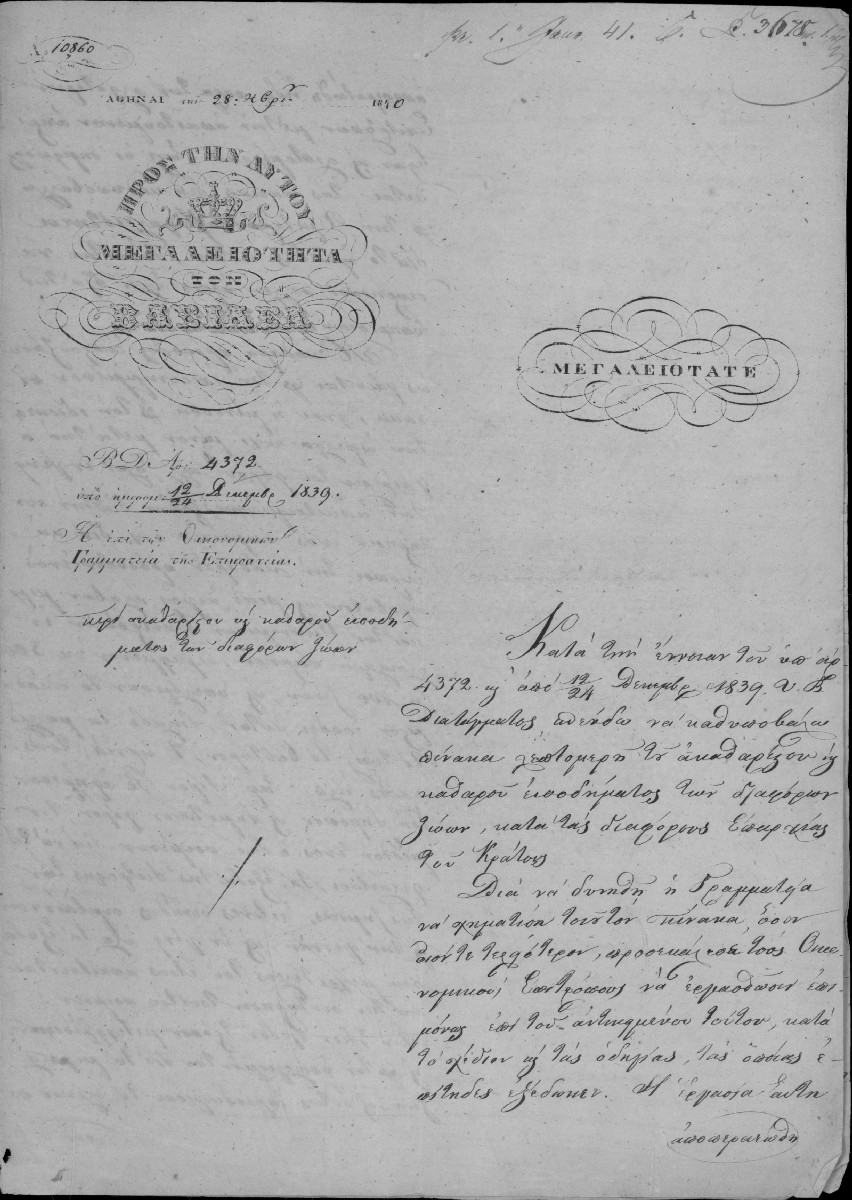 10860
41. 3678
ΑΘΗΝΑΙ την 28. 9βρίου 1840
ΠΡΟΣ ΤΗΝ ΑΥΤΟΥ
ΜΕΓΑΛΕΙΟΤΗΤΑ
ΤΟΝ
ΒΑΣΙΛΕΑ
ΜΕΓΑΛΕΙΟΤΑΤΕ
Β Δ Αρι 4372
ὑπὸ ἡμερομ. 12/24 Δεκεμβρ 1839.
Ἡ ἐπὶ τῶν Οἰκονομικῶν
Γραμματεία τῆς Ἐπικρατείας.
περὶ ἀκαθαρίστου καὶ καθαροῦ εἰσοδή-
ματος τῶν διαφόρων ζώων
Κατὰ τὴν ἔννοιαν τοῦ ὑπ' ἀρ.
4372 καὶ ἀπὸ 12/24 Δεκεμβρ 1839. Υ. Β.
Διατάγματος σπεύδω νὰ καθυποβάλω
πίνακα λεπτομερῆ τοῦ ἀκαθαρίστου καὶ
καθαροῦ εἰσοδήματος τῶν διαφόρων
ζώων, κατὰ τὰς διαφόρους Ἐπαρχίας
τοῦ Κράτους
Διὰ νὰ δυνηθῇ ἡ Γραμματεία
νὰ σχηματίσῃ τοιοῦτον πίνακα, ὅσον
οἷόν τε τελειότερον, προσεκάλεσε τοὺς Οἰκο-
νομικοὺς Ἐπιτρόπους νὰ ἐργασθῶσιν ἐπι-
μόνως ἐπὶ τοῦ ἀντικειμένου τούτου, κατὰ
τὸ σχέδιον καὶ τὰς ὁδηγίας, τὰς ὁποίας ἐ-
πίτηδες ἐξέδωκεν. Ἡ ἐργασία αὕτη
ἀποπερατωθεῖ